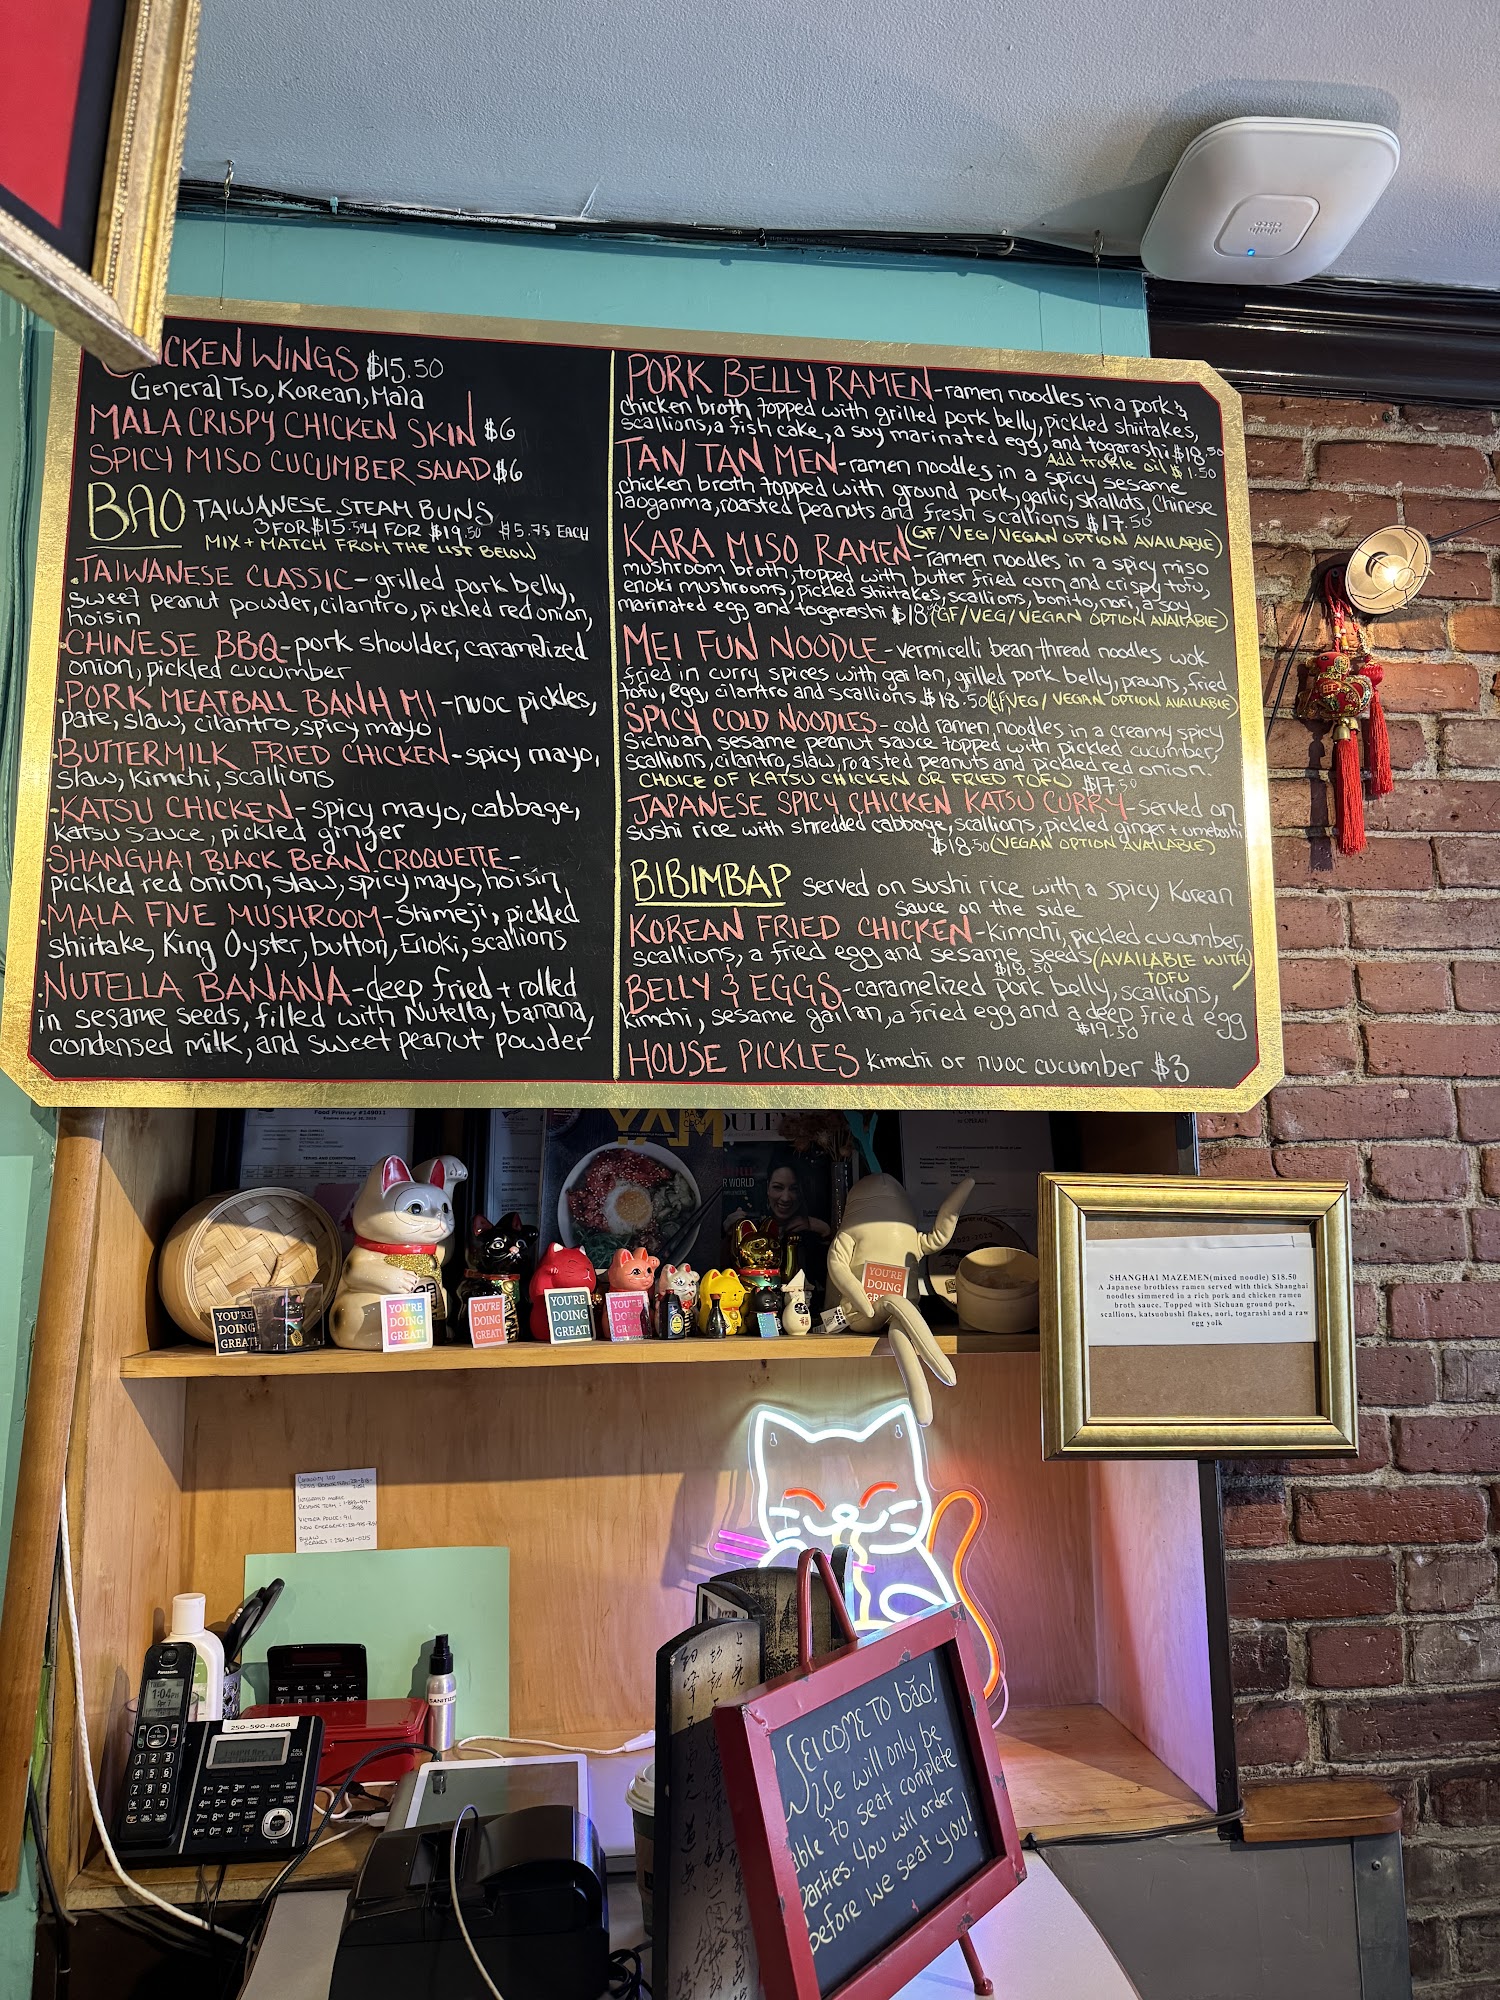 CKEN WINGS $15.50
General Tso, Korean, Mala
MALA CRISPY CHICKEN SKIN $6
SPICY MISO CUCUMBER SALAD $6
BAO TAIWANESE STEAM BUNS
3 FOR $15.5 4 FOR $19.50 $5.75 EACH
MIX + MATCH FROM THE LIST BELOW
·TAIWANESE CLASSIC - grilled pork belly,
sweet peanut powder, cilantro, pickled red onion,
hoisin
·CHINESE BBQ - pork shoulder, caramelized
onion, pickled cucumber
·PORK MEATBALL BANH MI - nuoc pickles,
pate, slaw, cilantro, spicy mayo
·BUTTERMILK FRIED CHICKEN - spicy mayo,
slaw, kimchi, scallions
·KATSU CHICKEN - spicy mayo, cabbage,
katsu sauce, pickled ginger
·SHANGHAI BLACK BEAN CROQUETTE -
pickled red onion, slaw, spicy mayo, hoisin
·MALA FIVE MUSHROOM - Shimeji, pickled
shiitake, King Oyster, button, Enoki, scallions
·NUTELLA BANANA - deep fried + rolled
in sesame seeds, filled with Nutella, banana,
condensed milk, and sweet peanut powder
PORK BELLY RAMEN - ramen noodles in a pork &
chicken broth topped with grilled pork belly, pickled shiitakes,
scallions, a fish cake, a soy marinated egg, and togarashi $18.50
Add truffle oil $1.50
TAN TAN MEN - ramen noodles in a spicy sesame
chicken broth topped with ground pork, garlic, shallots, Chinese
laoganma, roasted peanuts and fresh scallions $17.50
(GF/VEG/VEGAN OPTION AVAILABLE)
KARA MISO RAMEN - ramen noodles in a spicy miso
mushroom broth, topped with butter fried corn and crispy tofu,
enoki mushrooms, pickled shiitakes, scallions, bonito, nori, a soy
marinated egg and togarashi $18 (GF/VEG/VEGAN OPTION AVAILABLE)
MEI FUN NOODLE - vermicelli bean thread noodles wok
fried in curry spices with gai lan, grilled pork belly, prawns, fried
tofu, egg, cilantro and scallions $18.50 (GF/VEG/VEGAN OPTION AVAILABLE)
SPICY COLD NOODLES - cold ramen noodles in a creamy spicy
Sichuan sesame peanut sauce topped with pickled cucumber,
scallions, cilantro, slaw, roasted peanuts and pickled red onion.
CHOICE OF KATSU CHICKEN OR FRIED TOFU $17.50
JAPANESE SPICY CHICKEN KATSU CURRY - served on
sushi rice with shredded cabbage, scallions, pickled ginger + umeboshi
$18.50 (VEGAN OPTION AVAILABLE)
BIBIMBAP served on sushi rice with a spicy Korean
sauce on the side
KOREAN FRIED CHICKEN - kimchi, pickled cucumber,
scallions, a fried egg and sesame seeds (AVAILABLE WITH
$18.50 TOFU
BELLY & EGGS - caramelized pork belly, scallions,
kimchi, sesame gailan, a fried egg and a deep fried egg
$19.50
HOUSE PICKLES kimchi or nuoc cucumber $3
cisco
Food Primary #149011
YAM
WORLD
YOU'RE
DOING
GREAT!
YOU'RE
DOING
GREAT!
YOU'RE
DOING
GREAT!
YOU'RE
DOING
GREAT!
YOU'RE
DOING
GREAT!
YOU'RE
DOING
SHANGHAI MAZEMEN (mixed noodle) $18.50
A Japanese brothless ramen served with thick Shanghai
noodles simmered in a rich pork and chicken ramen
broth sauce. Topped with Sichuan ground pork,
scallions, katsuobushi flakes, nori, togarashi and a raw
egg yolk
Panasonic
1:04
250-590-8688
WELCOME TO băo!
We will only be
able to seat complete
parties. You will order
before we seat you!